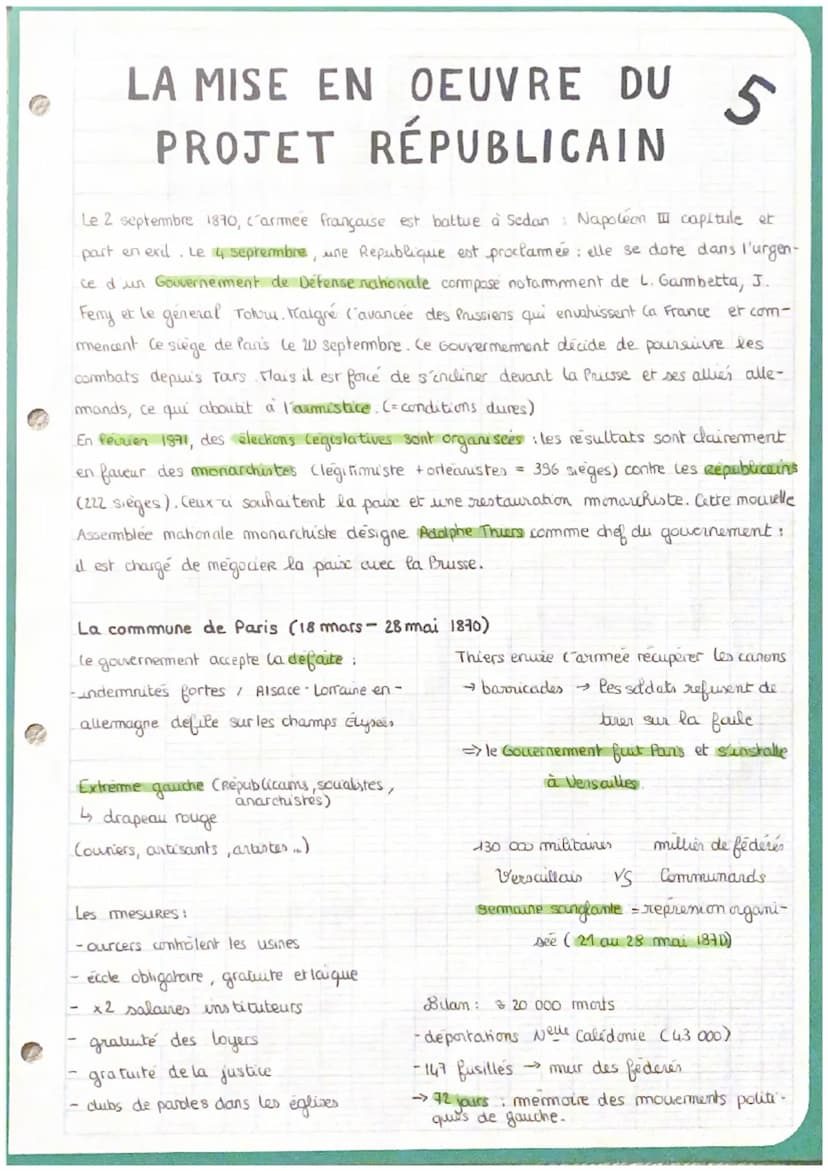 LA MISE EN OEUVRE DU
PROJET RÉPUBLICAIN
5
Le 2 septembre 1870, l'armée française est battue à Sedan : Napoléon III capitule et
part en exil. Le 4 septembre, une République est proclamée : elle se dote dans l'urgen-
ce d'un Gouvernement de Défense nationale composé notamment de L. Gambetta, J.
Ferry et le général Malgré l'avancée des Prussiens qui envahissent la France et com-
mencent le siège de Paris le 20 septembre. Le Gouvernement décide de poursuivre les
combats depuis Tours. Mais il est forcé de s'incliner devant la Prusse et ses alliés alle-
mands, ce qui aboutit à l'armistice. (= conditions dures)
En février 1871, des élections législatives sont organisées : les résultats sont clairement
en faveur des monarchistes (légitimiste + orléanistes = 396 sièges) contre les républicains
(222 sièges). Ceux-ci souhaitent la paix et une restauration monarchiste. Cette nouvelle
Assemblée nationale monarchiste désigne Adolphe Thiers comme chef du gouvernement :
il est chargé de négocier la paix avec la Prusse.
La commune de Paris (18 mars - 28 mai 1870)
le gouvernement accepte la défaite :
- indemnités fortes / Alsace-Lorraine en-
allemagne défile sur les champs Élysées
Extrême gauche (Républicains, socialistes,
anarchistes)
↳ drapeau rouge
(ouvriers, artisants, artistes ...)
Les mesures :
- ouvriers contrôlent les usines
- école obligatoire, gratuite et laïque
- x2 salaires instituteurs
- gratuité des loyers
- gratuité de la justice
- clubs de paroles dans les églises
Thiers envoie l'armée récupérer les canons
→ barricades → les soldats refusent de
tirer sur la foule
=> le Gouvernement fuit Paris et s'installe
à Versailles.
130 000 militaires millier de fédérés
Versaillais VS Communards
semaine sanglante = répression organi-
sée (21 au 28 mai 1870)
Bilan : 20 000 morts
- déportations Nelle Calédonie (43 000)
- 147 fusillés → mur des fédérés
→ 72 jours : mémoire des mouvements politi-
ques de gauche.